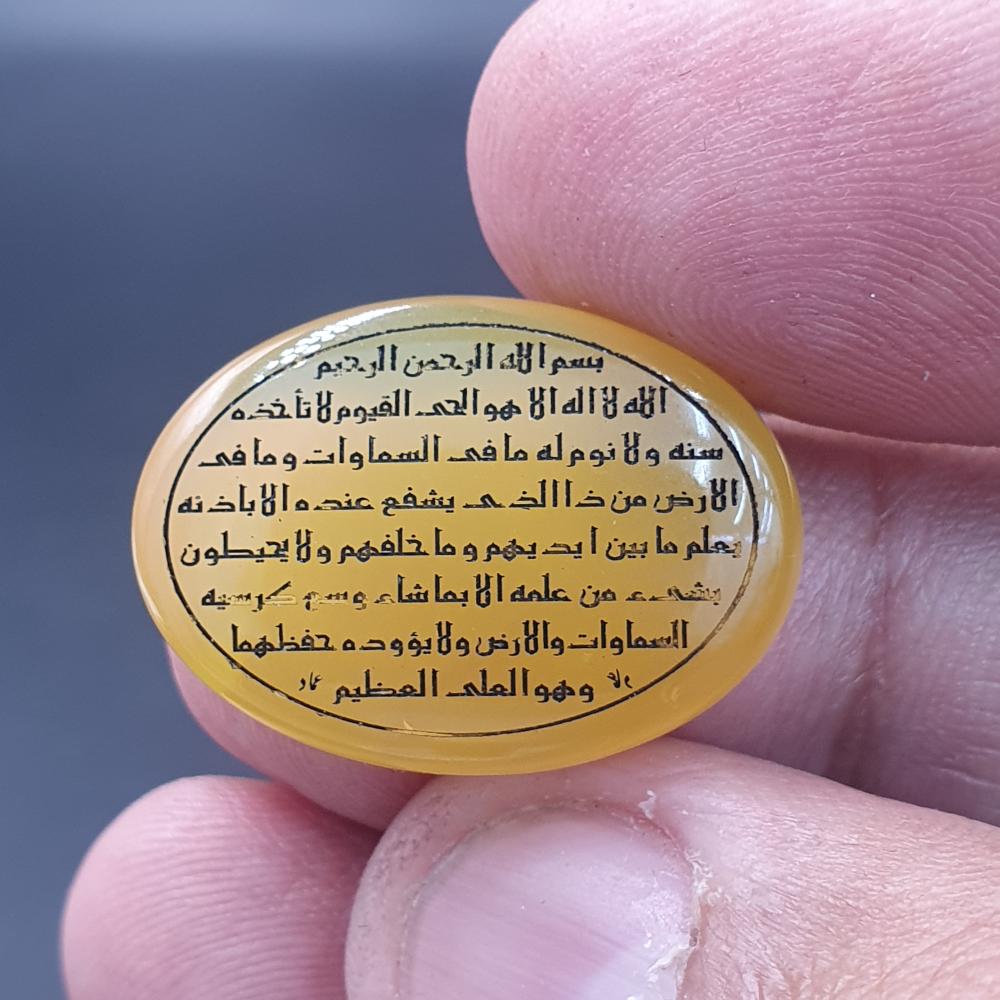 بسم الله الرحمن الرحيم
الله لا اله الا هو الحى القيوم لا تأخذه
سنه ولا نوم له ما فى السماوات وما فى
الارض من ذا الذى يشفع عنده الا باذنه
يعلم ما بين ايديهم وما خلفهم ولا يحيطون
بشىء من علمه الا بما شاء وسع كرسيه
السماوات والارض ولا يؤوده حفظهما
وهو العلى العظيم